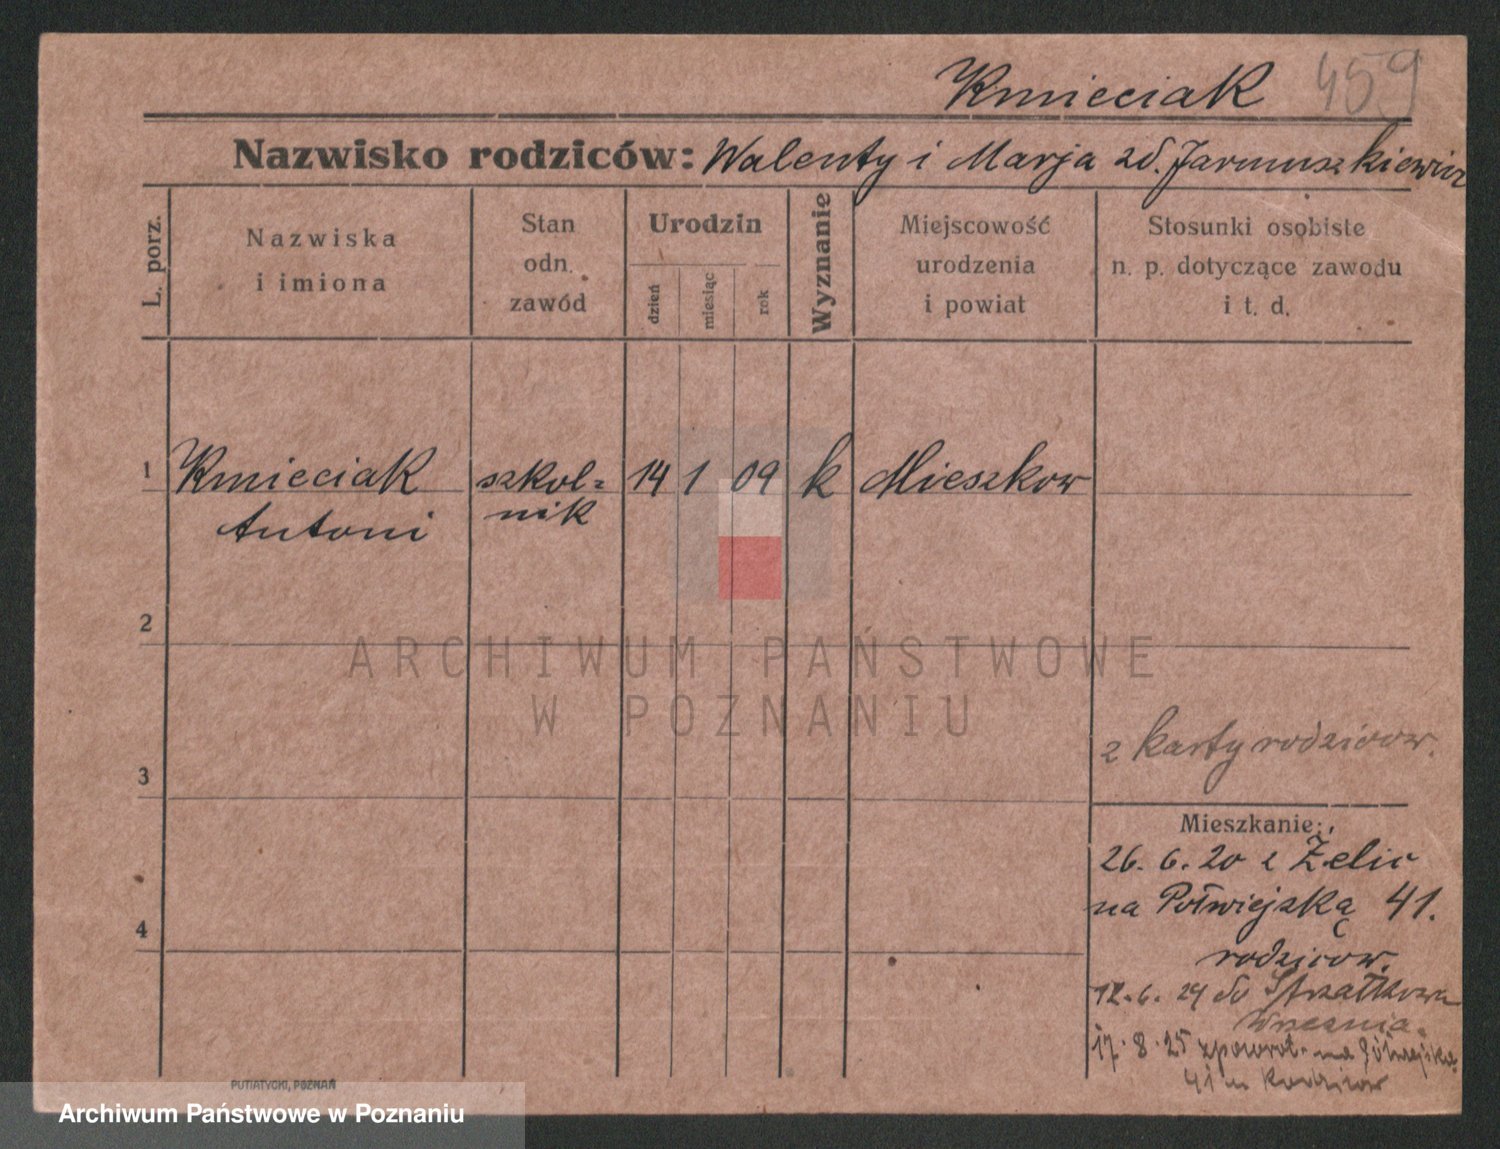 Kmieciak 459
Nazwisko rodziców: Walenty i Marja zd. Jarmuszkiewicz
L. porz.
Nazwiska
i imiona
Stan
odn.
zawód
Urodzin
dzień
miesiąc
rok
Wyznanie
Miejscowość
urodzenia
i powiat
Stosunki osobiste
n. p. dotyczące zawodu
i t. d.
1 Kmieciak szkol= 14 1 09 k Mieszkow
Antoni nik
2
ARCHIWUM PAŃSTWOWE
W POZNANIU
z karty rodziców.
3
Mieszkanie:
26. 6. 20 z Żelic
na Półwiejską 41.
4
rodziców.
12. 6. 24 do Strzałkowa
Września.
17. 8. 25 zpowrot. na Półwiejską
41 u Rodziców
PUTIATYCKI, POZNAŃ
Archiwum Państwowe w Poznaniu